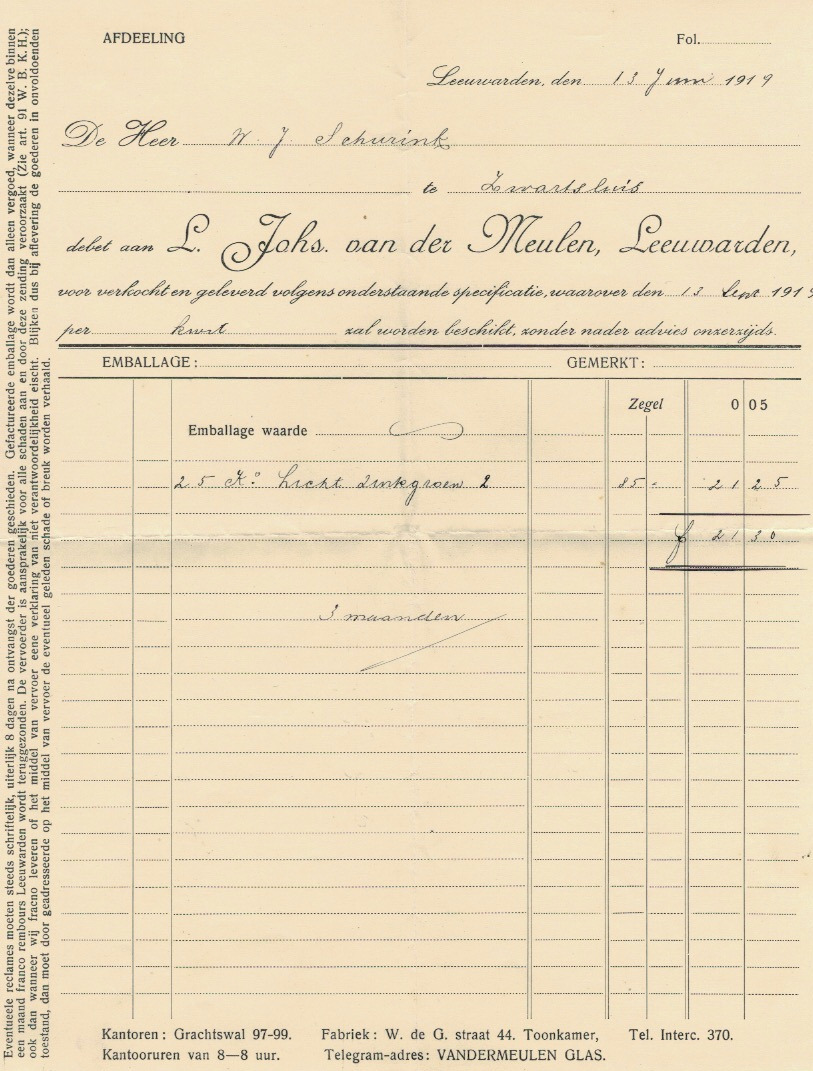 AFDEELING Fol.
Leeuwarden, den 13 Juni 1919
De Heer W. J. Schurink
te Zwartsluis
debet aan L. Johs. van der Meulen, Leeuwarden,
voor verkocht en geleverd volgens onderstaande specificatie, waarover den 13 Sept 1919
per kwit zal worden beschikt, zonder nader advies onzerzijds.
EMBALLAGE: GEMERKT:
Zegel 0 05
Emballage waarde
25 Ko Licht Zinkgroen 2 85 - 21 25
f 21 30
3 maanden
Kantoren: Grachtswal 97-99. Fabriek: W. de G. straat 44. Toonkamer, Tel. Interc. 370.
Kantooruren van 8—8 uur. Telegram-adres: VANDERMEULEN GLAS.
Eventueele reclames moeten steeds schriftelijk, uiterlijk 8 dagen na ontvangst der goederen geschieden. Gefactureerde emballage wordt dan alleen vergoed, wanneer dezelve binnen
een maand franco rembours Leeuwarden wordt teruggezonden. De vervoerder is aansprakelijk voor alle schaden aan en door deze zending veroorzaakt (Zie art. 91 W. B. K. H.);
ook dan wanneer wij fracno leveren of het middel van vervoer eene verklaring van niet verantwoordelijkheid eischt. Blijken dus bij aflevering de goederen in onvoldoenden
toestand, dan moet door geadresseerde op het middel van vervoer de eventueel geleden schade of breuk worden verhaald.